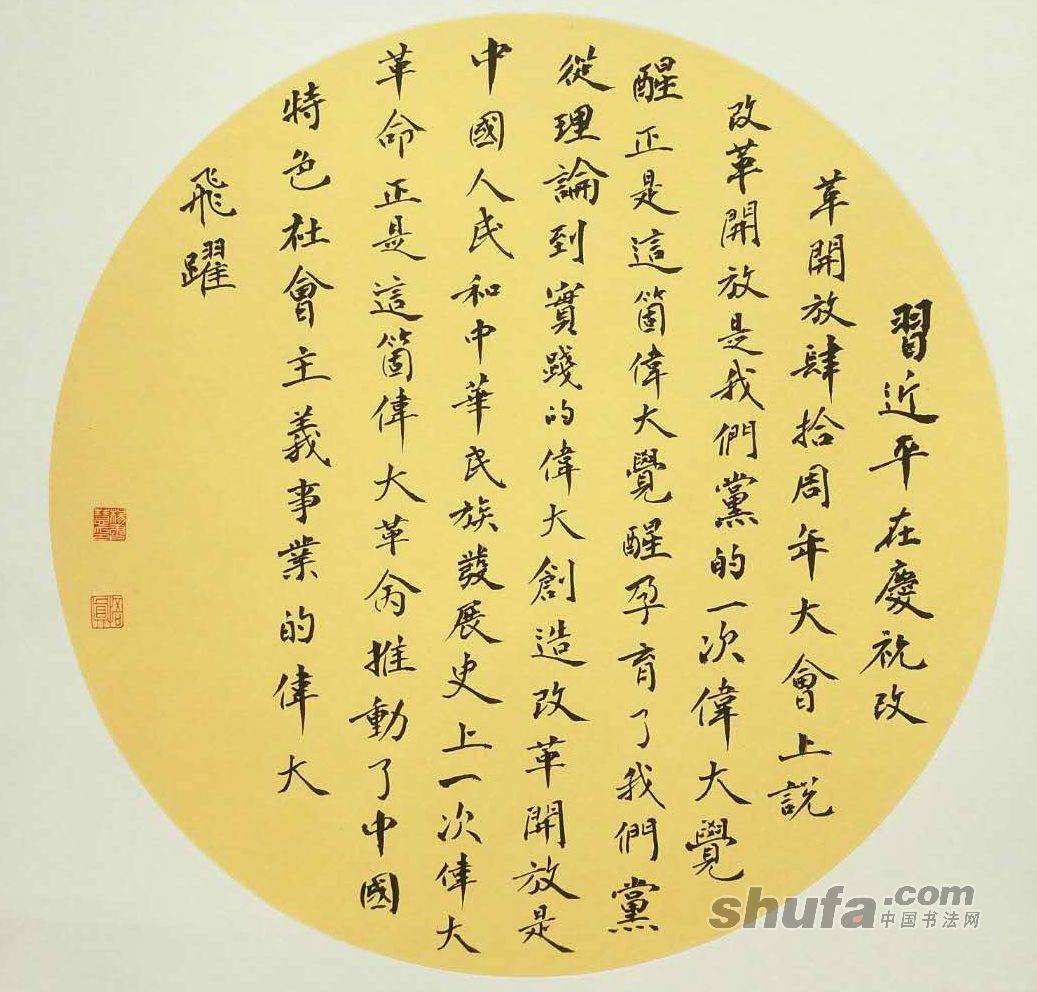 習近平在慶祝改
革開放肆拾周年大會上說
改革開放是我們黨的一次偉大覺
醒正是這箇偉大覺醒孕育了我們黨
從理論到實踐的偉大創造改革開放是
中國人民和中華民族發展史上一次偉大
革命正是這箇偉大革命推動了中國
特色社會主義事業的偉大
飛躍
shufa.com
中国书法网